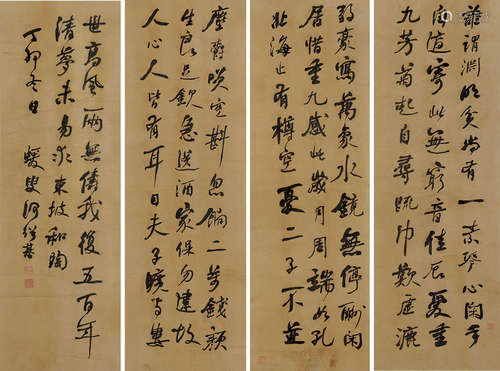 誰謂淵明貧尚有一素琴心閑手
自適寄此無窮音佳辰愛重
九芳菊起自尋疏巾歎虛漉
弱豪寫萬象水鏡無停酬閑
居惜重九感此歲月周端如孔
北海止有樽空憂二子不並
塵爵咲空斟忽餉二萬錢顏
生良足欽急送酒家保勿違故
人心人皆有耳目夫子曠與婁
世高風兩無儔我後五百年
清夢未易求東坡和陶
丁卯冬日 蝯叟何紹基